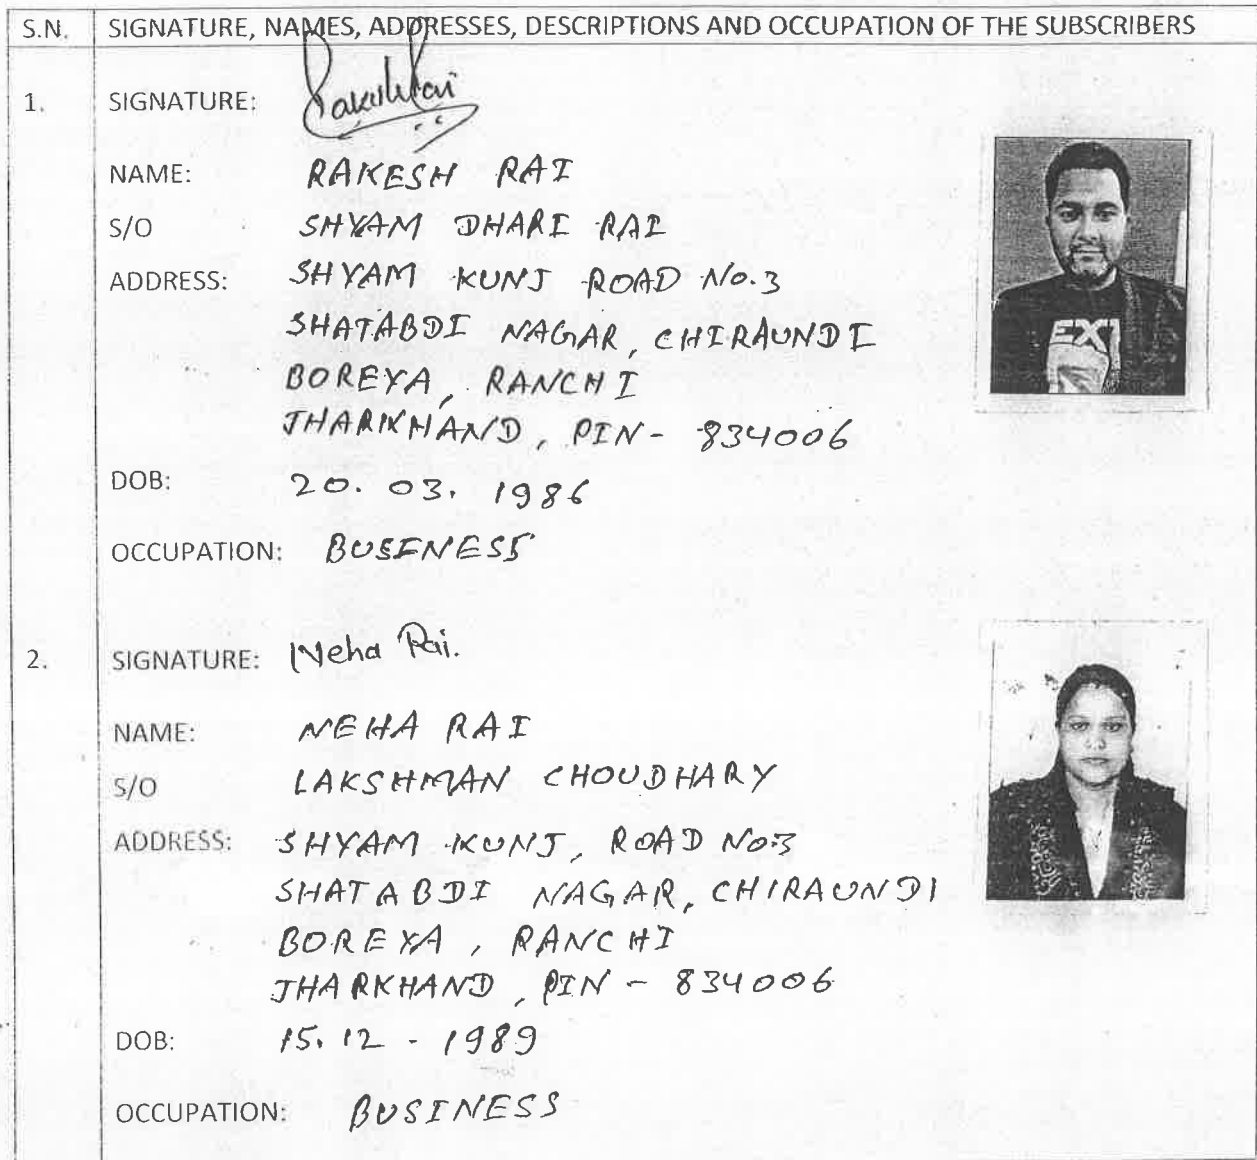 S.N. SIGNATURE, NAMES, ADDRESSES, DESCRIPTIONS AND OCCUPATION OF THE SUBSCRIBERS
1. SIGNATURE:
NAME: RAKESH RAI
S/O SHYAM DHARI RAI
ADDRESS: SHYAM KUNJ ROAD No.3
SHATABDI NAGAR, CHIRAUNDI
BOREYA, RANCHI
JHARKHAND, PIN- 834006
DOB: 20. 03. 1986
OCCUPATION: BUSINESS
2. SIGNATURE: Neha Rai.
NAME: NEHA RAI
S/O LAKSHMAN CHOUDHARY
ADDRESS: SHYAM KUNJ, ROAD No.3
SHATABDI NAGAR, CHIRAUNDI
BOREYA, RANCHI
JHARKHAND, PIN - 834006
DOB: 15. 12 - 1989
OCCUPATION: BUSINESS